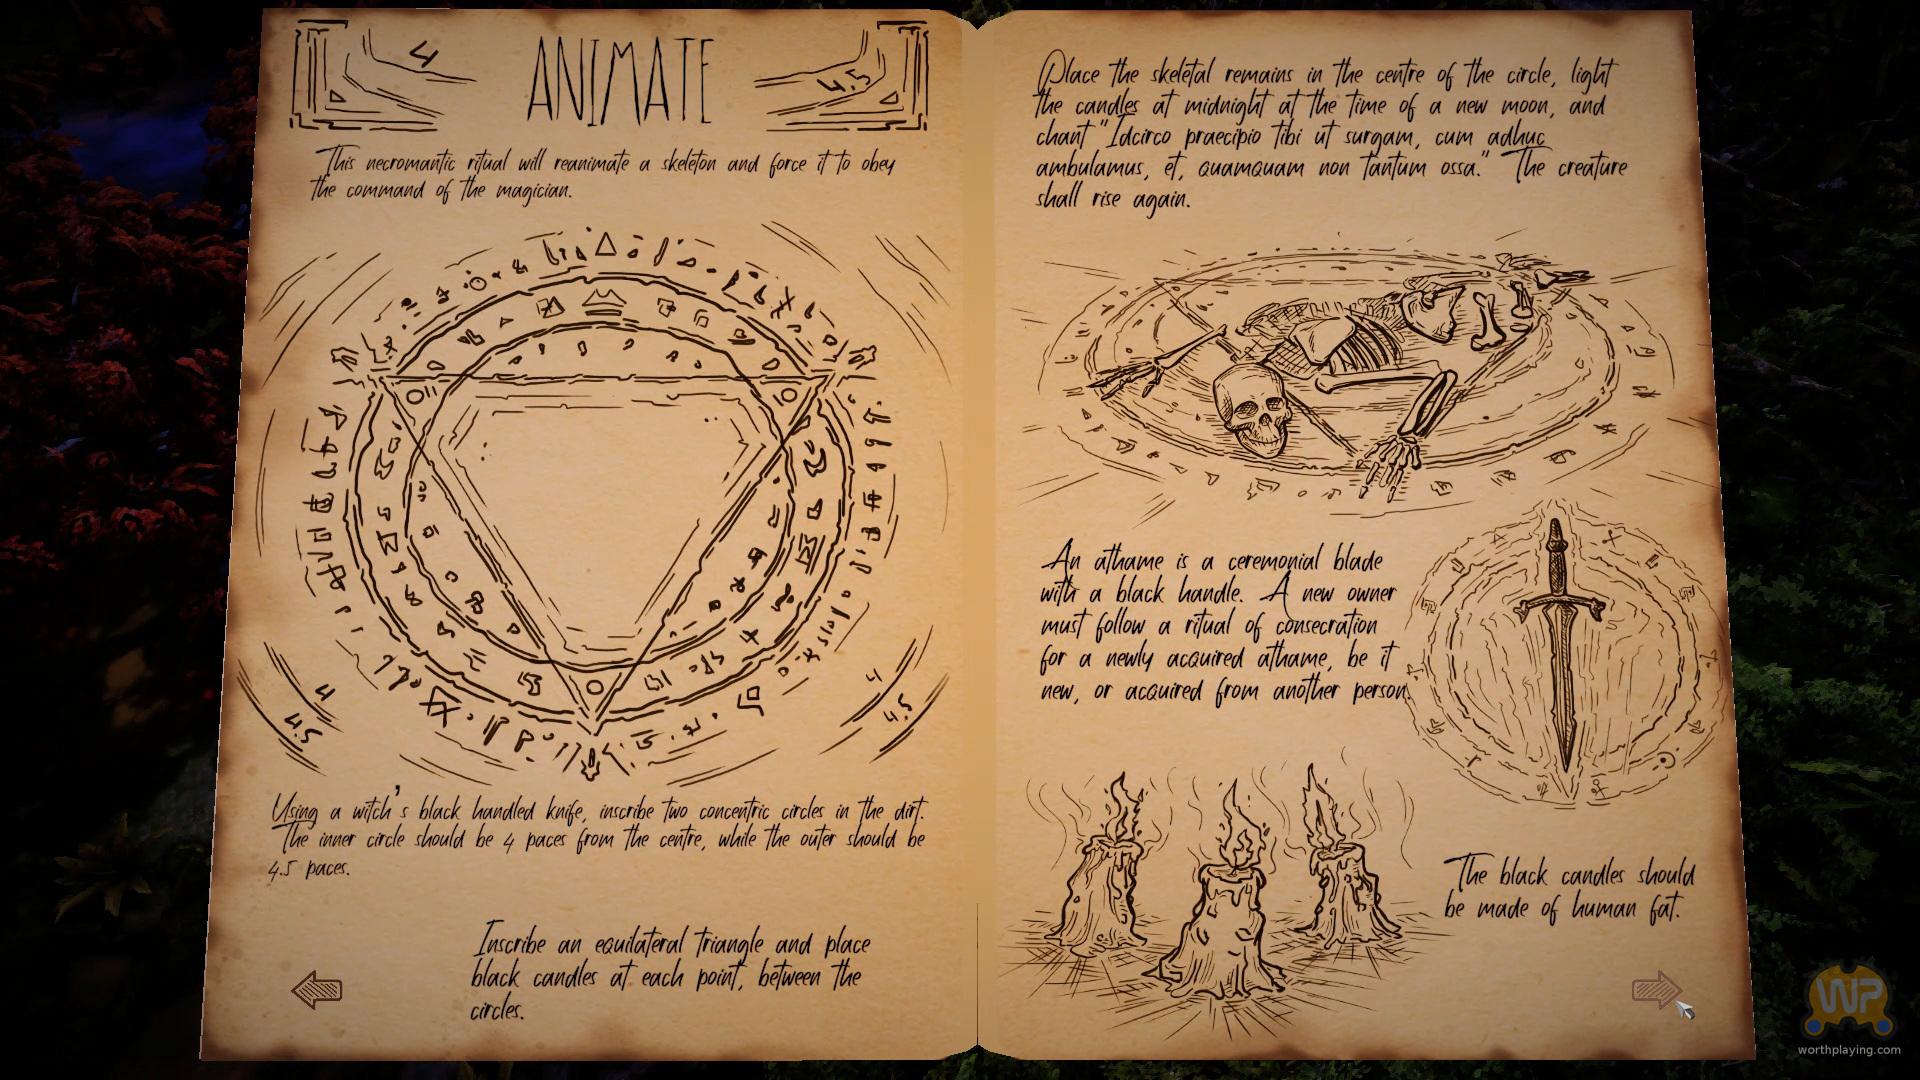 4
ANIMATE
4.5
This necromantic ritual will reanimate a skeleton and force it to obey
the command of the magician.
4
4.5
4
4.5
Using a witch's black handled knife, inscribe two concentric circles in the dirt.
The inner circle should be 4 paces from the centre, while the outer should be
4.5 paces.
Inscribe an equilateral triangle and place
black candles at each point, between the
circles.
Place the skeletal remains in the centre of the circle, light
the candles at midnight at the time of a new moon, and
chant "Idcirco praecipio tibi ut surgam, cum adhuc
ambulamus, et, quamquam non tantum ossa." The creature
shall rise again.
An athame is a ceremonial blade
with a black handle. A new owner
must follow a ritual of consecration
for a newly acquired athame, be it
new, or acquired from another person.
The black candles should
be made of human fat.
WP
worthplaying.com